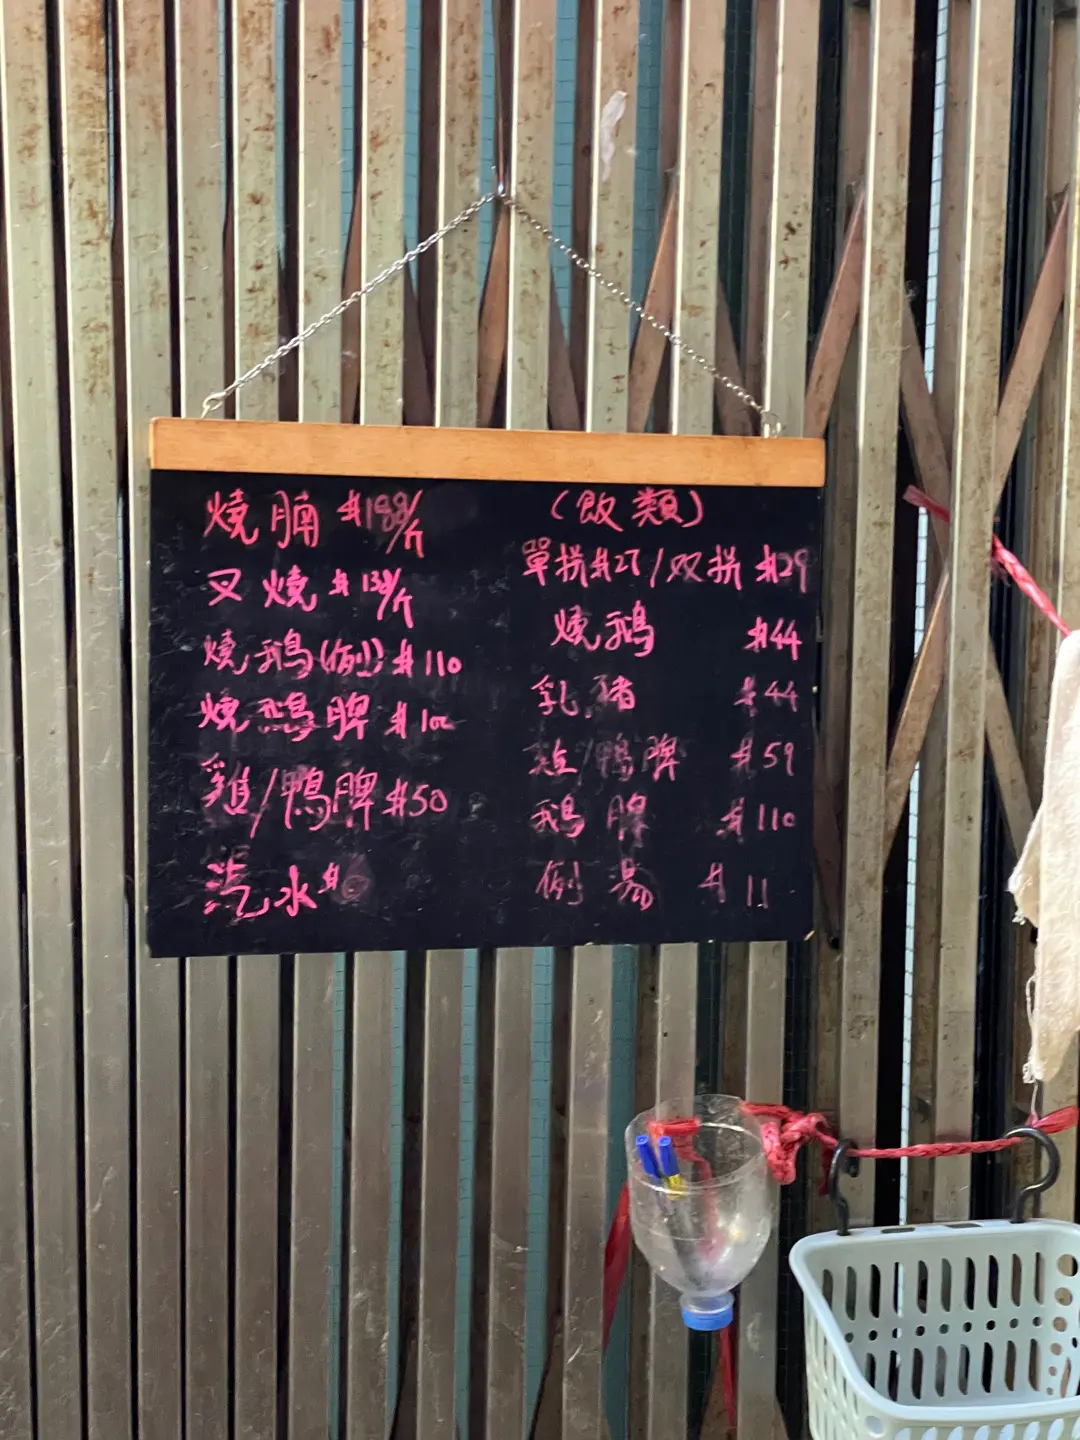 燒腩 $188/斤
叉燒 $138/斤
燒鵝(例) $110
燒鵝脾 $100
雞/鴨脾 $50
汽水 $
(飯類)
單拼$27/双拼 $29
燒鵝 $44
乳豬 $44
/鴨脾 $59
鵝脾 $110
例湯 $11